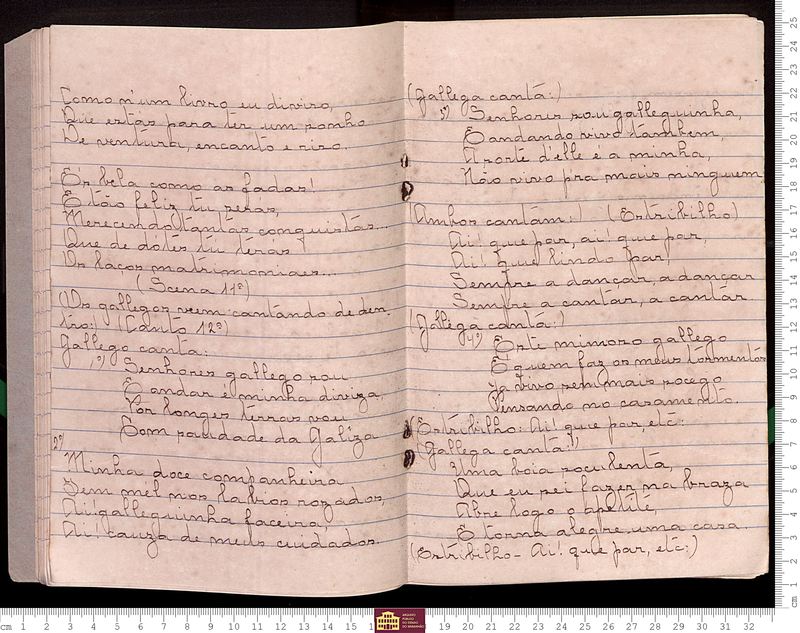 Como n'um livro eu diviso,
Que estás para ter um sonho
De ventura, encanto e riso.
És bela como as fadas!
E tão feliz tu serás,
Merecendo tantas conquistas...
Que de dotes tu terás!
Os laços matrimoniaes...
(Scena 11ª)
(Os gallegos veem cantando de den-
tro:) (Canto 12º)
Gallego canta:
1º) Senhores gallego sou
E andar é minha diviza,
Por longes terras vou
Com saudade da Galiza
2º)
Minha doce companheira
Tem mel nos labios rozados,
Ai! galleguinha faceira!
Ai! cauza de meus cuidados.
(Gallega cantá:)
3º) Senhores sou galleguinha,
E andando vivo tambem,
A sorte d'elle é a minha,
Não vivo pra mais ninguem
(Ambos cantam:) (Estribilho)
Ai! que par, ai! que par,
Ai! que lindo par,
Sempre a dançar, a dançar
Sempre a cantar, a cantar
(Gallega cantá:)
4º) Este mimoso gallego
É quem faz os meus tormentos
Já vivo sem mais socego
Pensando no casamento.
(Estribilho: Ai! que par, etc:
(Gallega cantá:)
Uma boia soculenta,
Que eu sei fazer na braza
Abre logo o apetite,
E torna alegre uma casa.
(Estribilho - Ai! que par, etc:)
ARQUIVO
PÚBLICO
DO ESTADO
DO MARANHÃO